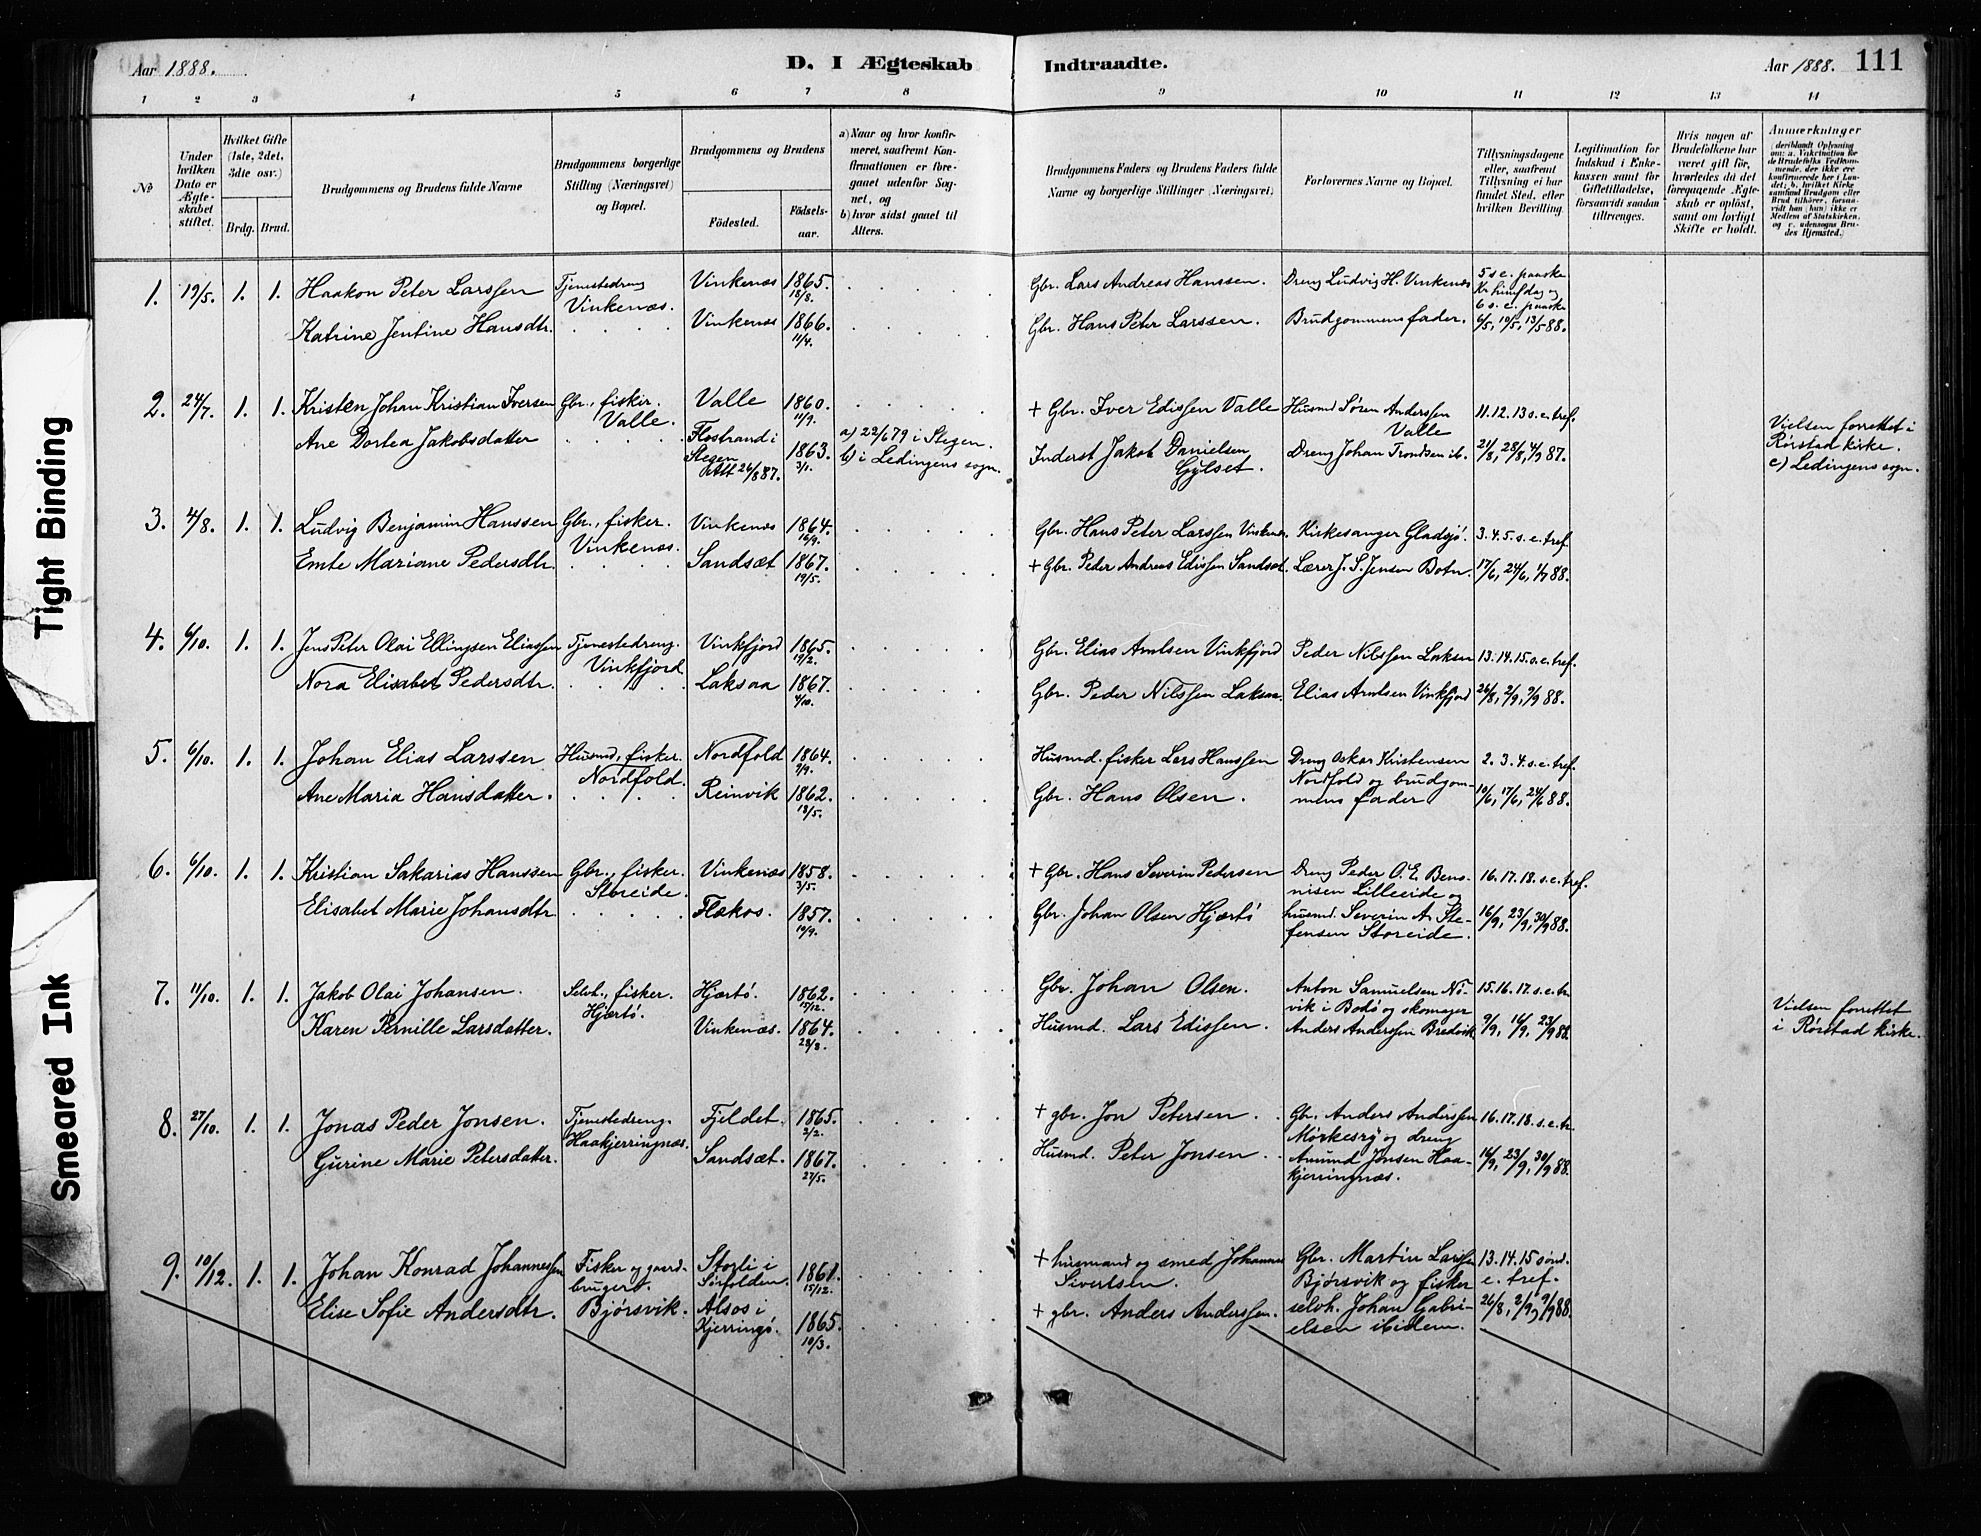 Aar 1888.
D. I Ægteskab
Indtraadte.
Aar 1888. 111
1 2 3 4 5 6 7 8
9 10 11 12 13 14
No
Under hvilken Dato er Ægteskabet stiftet.
Hvilket Gifte (1ste, 2det, 3dte osv.)
Brdg. Brud.
Brudgommens og Brudens fulde Navne
Brudgommens borgerlige Stilling (Næringsvei) og Bopæl.
Brudgommens og Brudens
Fødested.
Fødsels-aar.
a) Naar og hvor konfirmeret, saafremt Konfirmationen er foregaaet udenfor Sognet, og
b) hvor sidst gaaet til Alters.
Brudgommens Faders og Brudens Faders fulde Navne og borgerlige Stillinger (Næringsvei).
Forlovernes Navne og Bopæl.
Tillysningsdagene eller, saafremt Tillysning ei har fundet Sted, efter hvilken Bevilling.
Legitimation for Indskud i Enkekassen samt for Giftetilladelse, forsaavidt saadan tiltrænges.
Hvis nogen af Brudefolkene har været gift før, hvorledes da det foregaaende Ægteskab er opløst, samt om lovligt Skifte er holdt.
Anmerkninger
(deriblandt Oplysning om: a. Vakcination for de Brudefolks Vedkommende, der ikke ere konfirmerede her i Landet; b. hvilket Kirkesamfund Brudgom eller Brud tilhører, forsaavidt han (hun) ikke er Medlem af Statskirken, og c. udensogns Brudes Hjemsted.)
1. 19/5. 1. 1. Haakon Peter Larssen Tjenestedreng Vinkenæs. Vinkenæs 1865. 18/8. Gbr. Lars Andreas Hanssen. Dreng Ludvig H. Vinkenæs 5 s. e. paaske Kr. himfdag og 6 s. e. paaske
Katrine Jentine Hansdtr. Vinkenæs 1866. 11/4. Gbr. Hans Peter Larssen. Brudgommens fader. 6/5, 10/5, 13/5 88.
2. 24/7. 1. 1. Kristen Johan Kristian Iversen Gbr., fisker. Valle. Valle 1860. 11/9. + Gbr. Iver Edissen Valle Husmd Søren Anderssen Valle 11. 12. 13 s. e. tref.
Ane Dortea Jakobsdatter Flostrand i Stegen Att 26/8 87. 1863. 3/1. a) 22/6 79 i Stegen. b) i Ledingens sogn. Inderst Jakob Danielsen Gylset. Dreng Johan Trondsen ib. 21/8, 28/8, 4/9 87.
Vielsen forrettet i Rørstad kirke. c) Ledingens sogn.
3. 4/8. 1. 1. Ludvig Benjamin Hanssen Gbr., fisker. Vinkenæs. Vinkenæs 1864. 16/9. Gbr. Hans Peter Larssen Vinkenæs. Kirkesanger Gladsjø. 3. 4. 5. s. e. tref.
Emte Mariane Pedersdtr. Sandsæt 1867. 19/5. + Gbr. Peder Andreas Edissen Sandsæt. Lærer J. S. Jensen Botn. 17/6, 24/6, 1/7 88.
4. 6/10. 1. 1. Jens Peter Olai Ellingsen Eliassen Tjenestedreng. Vinkfjord Vinkfjord 1865. 19/2. Gbr. Elias Arntsen Vinkfjord Peder Nilssen Laksaa 13. 14. 15. s. e. tref.
Nora Elisabet Pedersdtr. Laksaa 1867. 4/10. Gbr. Peder Nilssen Laksaa. Elias Arntsen Vinkfjord 26/8, 2/9, 9/9 88.
5. 6/10. 1. 1. Johan Elias Larssen Husmd, fisker. Nordfold. Nordfold 1864. 9/9. Husmd. fisker Lars Hanssen Dreng Oskar Kristensen Nordfold og brudgommens fader 2. 3. 4. s. e. tref.
Ane Maria Hansdatter. Reinvik 1862. 18/5. Gbr. Hans Olsen. 10/6, 17/6, 24/6 88.
6. 6/10. 1. 1. Kristian Sakarias Hanssen Gbr., fisker. Storeide. Vinkenæs 1858. 3/5. + Gbr. Hans Severin Petersen Dreng Peder O. E. Bennisen Lilleeide og 16. 17. 18. s. e. tref.
Elisabet Marie Johansdtr Flakos. 1857. 10/9. Gbr. Johan Olsen Hjærtø husmd. Severin A. Steffensen Storeide. 16/9, 23/9, 30/9 88.
7. 11/10. 1. 1. Jakob Olai Johansen. Selvh., fisker. Hjærtø. Hjærtø. 1862. 15/12. Gbr. Johan Olsen. Anton Samuelsen Nøvik i Bodø og skomager 15. 16. 17. s. e. tr.
Karen Pernille Larsdatter. Vinkenæs. 1864. 28/8. Husmd. Lars Edissen. Anders Anderssen Bredvik 9/9, 16/9, 23/9 88.
Vielsen forrettet i Rørstad kirke.
8. 27/10. 1. 1. Jonas Peder Jonsen. Tjenestedreng. Haakjerringnæs. Fjeldet. 1865. 2/2. + gbr. Jon Petersen. Gbr. Anders Anderssen Mørkesry og dreng 16. 17. 18. s. e. tr.
Gurine Marie Petersdatter. Sandsæt. 1867. 27/5. Husmd. Peter Jonsen. Amund Jonsen Haakjerringnæs. 16/9, 23/9, 30/9 88.
9. 10/12. 1. 1. Johan Konrad Johannessen Fisker og gaardbruger. Bjørsvik. Storli i Sørfolden. 1861. 15/12. + husmand og smed Johannes Sivertsen. Gbr. Martin Larssen Bjørsvik og fisker 13. 14. 15 sønd. e. tref.
Elise Sofie Andersdtr. Alsos i Kjerringø. 1865. 10/3. + gbr. Anders Anderssen. selvh. Johan Gabrielsen ibidem. 26/8, 2/9, 9/9 88.
Tight Binding
Smeared Ink